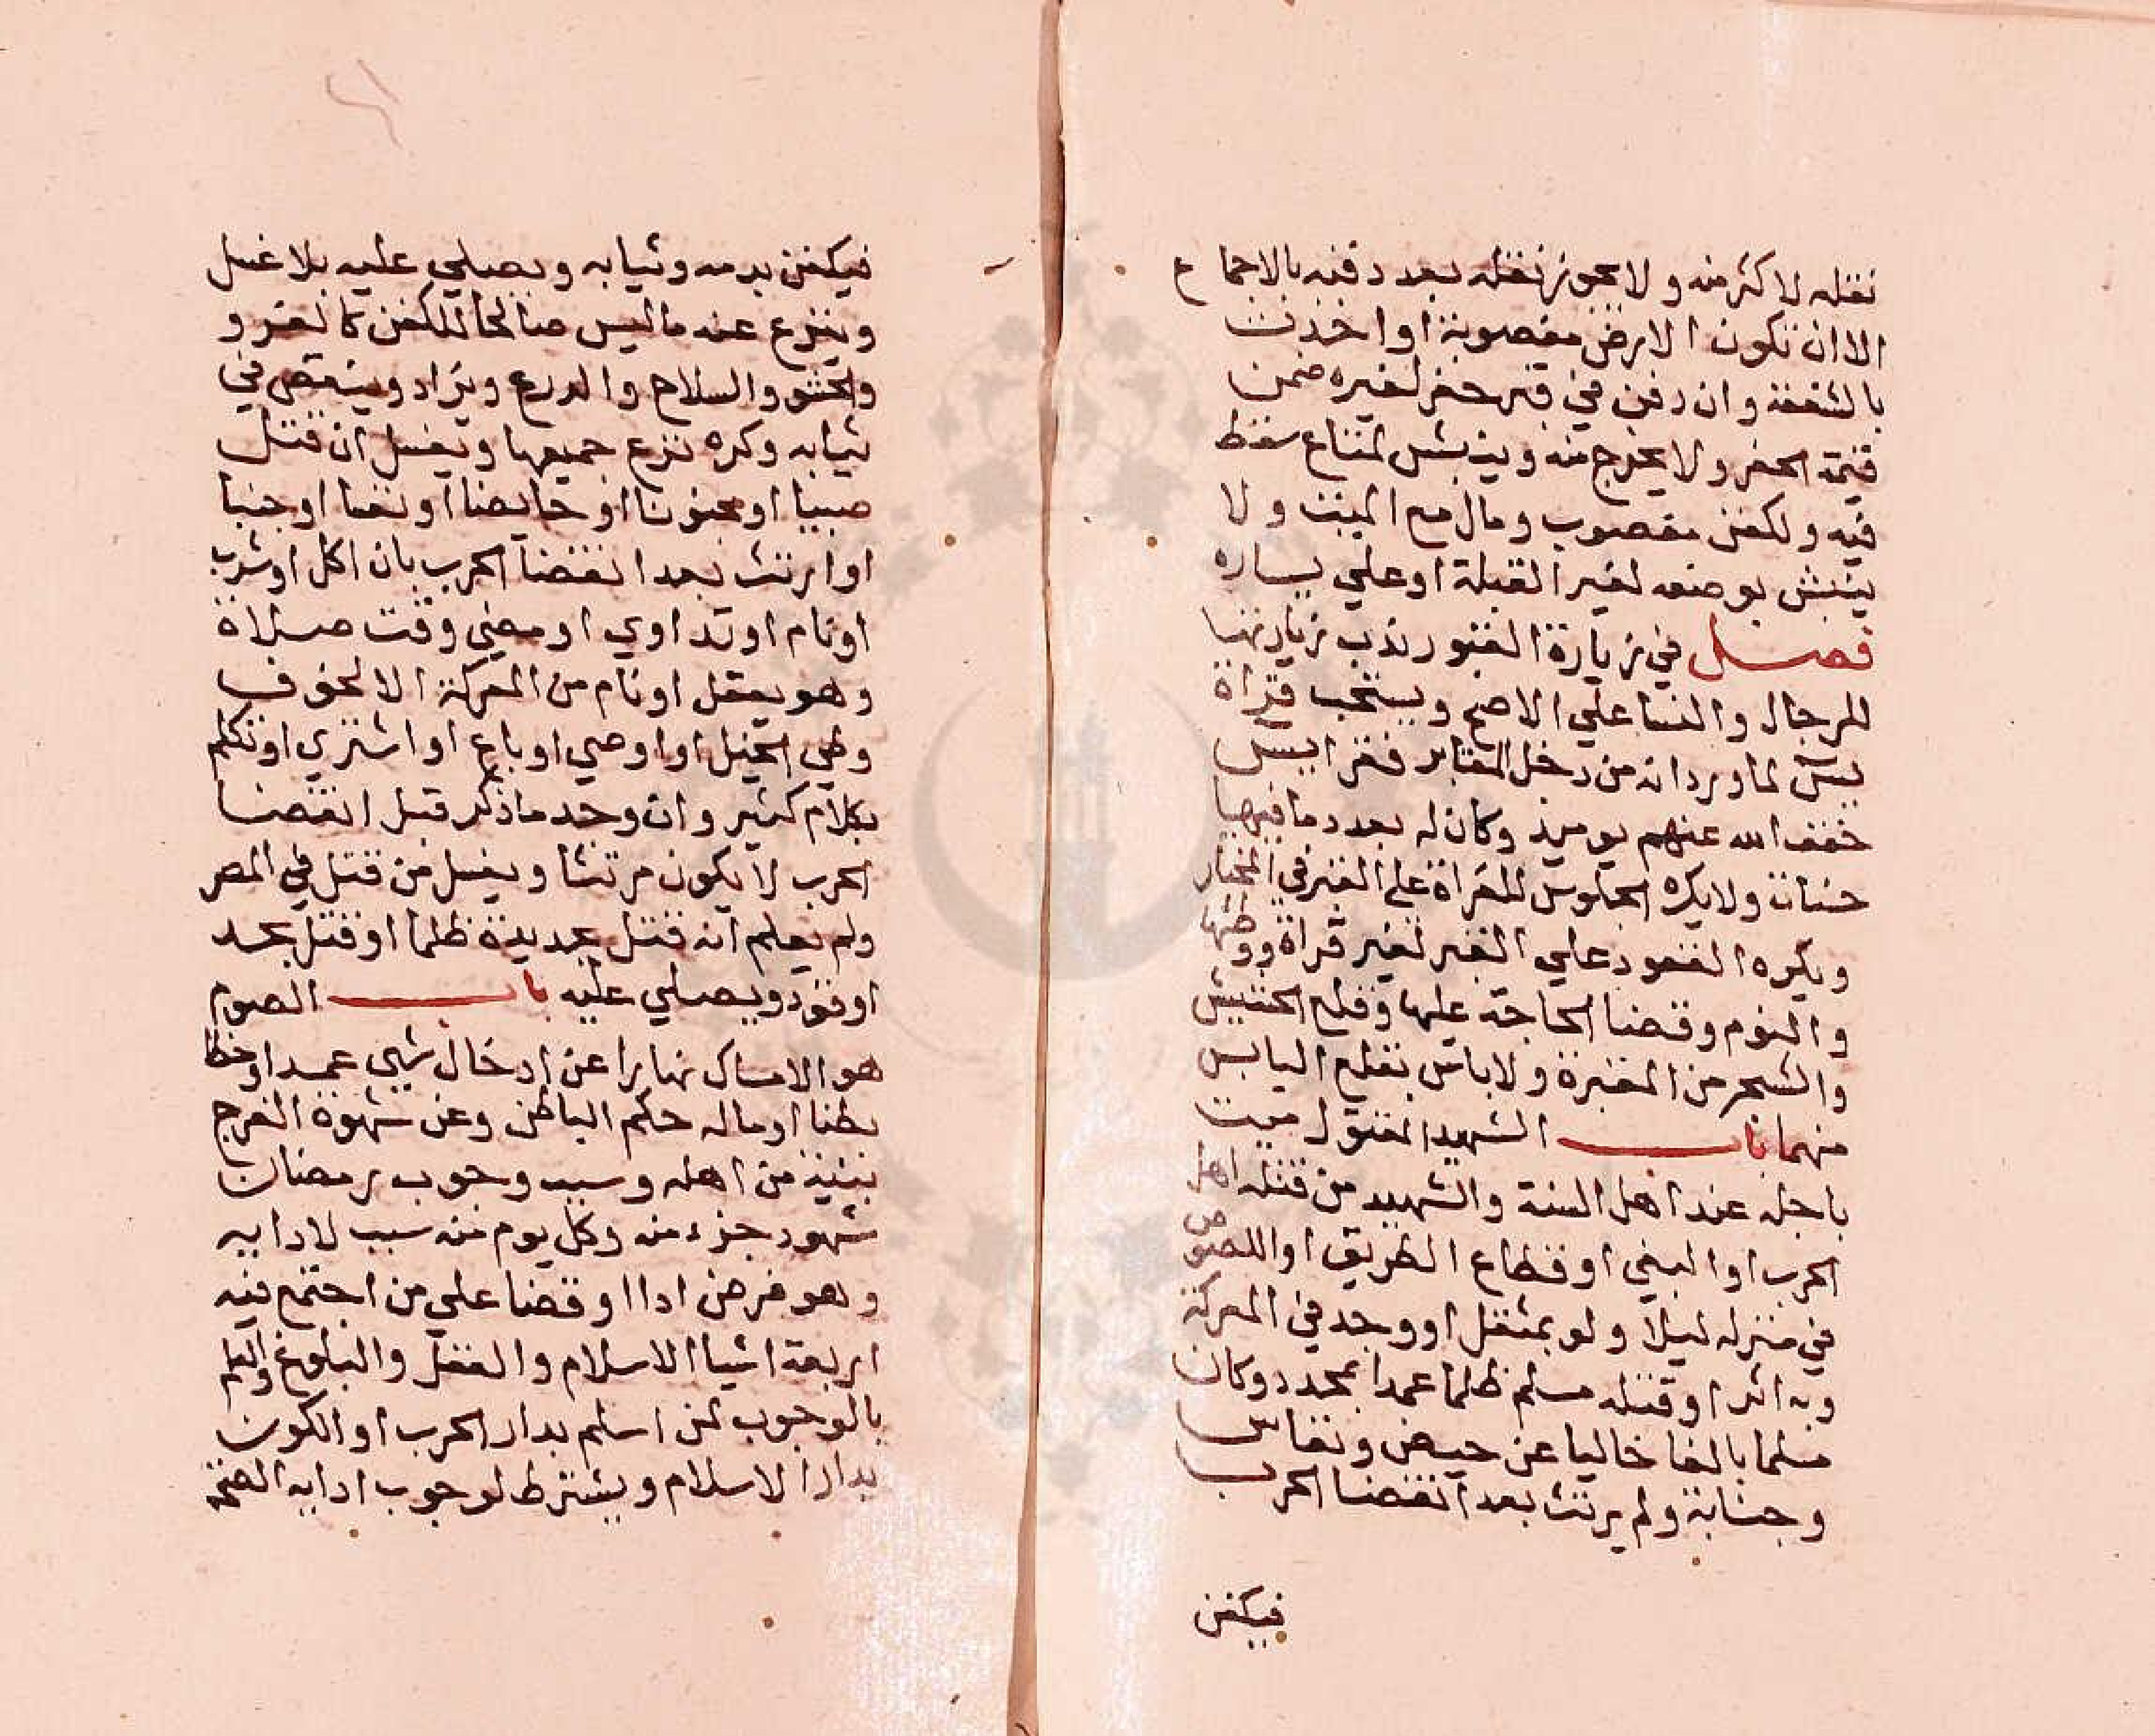 نقله لاكثر منه ولا يجوز نقله بعد دفنه بالاجماع
الا ان تكون الارض مغصوبة او اخذت
بالشفعة وان دفن في قبر حفر لغيره ضمن
قيمة الحفر ولا يخرج منه وينبش لمتاع سقط
فيه ولكفن مغصوب ومال مع الميت ولا
ينبش بوضعه لغير القبلة او علي يساره
فصل في زيارة القبور ندب زيارتها
للرجال والنسا علي الاصح ويستحب قراة
يس لما ورد انه من دخل المقابر فقرا يس
خفف الله عنهم يوميذ وكان له بعدد ما فيها
حسنات ولا يكره الجلوس للقراة علي القبر في المختار
ويكره القعود علي القبر لغير قراة ووطئها
والنوم وقضا الحاجة عليها وقلع الحشيش
والشجر من المقبرة ولا باس بقلع اليابس
منهما باب الشهيد المقتول ميت
باجله عند اهل السنة والشهيد من قتله اهل
الحرب او البغي او قطاع الطريق او اللصوص
في منزله ليلا ولو بمثقل او وجد في المعركة
وبه اثر او قتله مسلم ظلما عمدا بمحدد وكان
مسلما بالغا خاليا عن حيض ونفاس
وجنابة ولم يرتث بعد انقضا الحرب
فيكفن
فيكفن بدمه وثيابه ويصلي عليه بلا غسل
وينزع عنه ما ليس صالحا للكفن كالفرو
والحشو والسلاح والدرع ويزاد وينقص في
ثيابه وكره نزع جميعها ويغسل ان قتل
صبيا او مجنونا او حايضا او نفسا او جنبا
او ارتث بعد انقضا الحرب بان اكل او شرب
او نام او تداوي او مضي وقت صلاة
وهو يعقل او نام من المعركة الا لخوف
وطي الخيل او اوصي او باع او اشتري او تكلم
بكلام كثير وان وجد ما ذكر قبل انقضا
الحرب لا يكون مرتثا ويغسل من قتل في المصر
ولم يعلم انه قتل بحديدة ظلما او قتل بحد
او قود ويصلي عليه باب الصوم
هو الامساك نهارا عن ادخال شي عمدا او خطا
بطنا او ماله حكم الباطن وعن شهوة الفرج
بنية من اهله وسبب وجوب رمضان
شهود جزء منه وكل يوم منه سبب لادايه
وهو فرض ادا اوقضا علي من اجتمع فيه
اربعة اشيا الاسلام والعقل والبلوغ والعلم
بالوجوب لمن اسلم بدار الحرب او الكون
بدار الاسلام ويشترط لوجوب ادايه الصحة